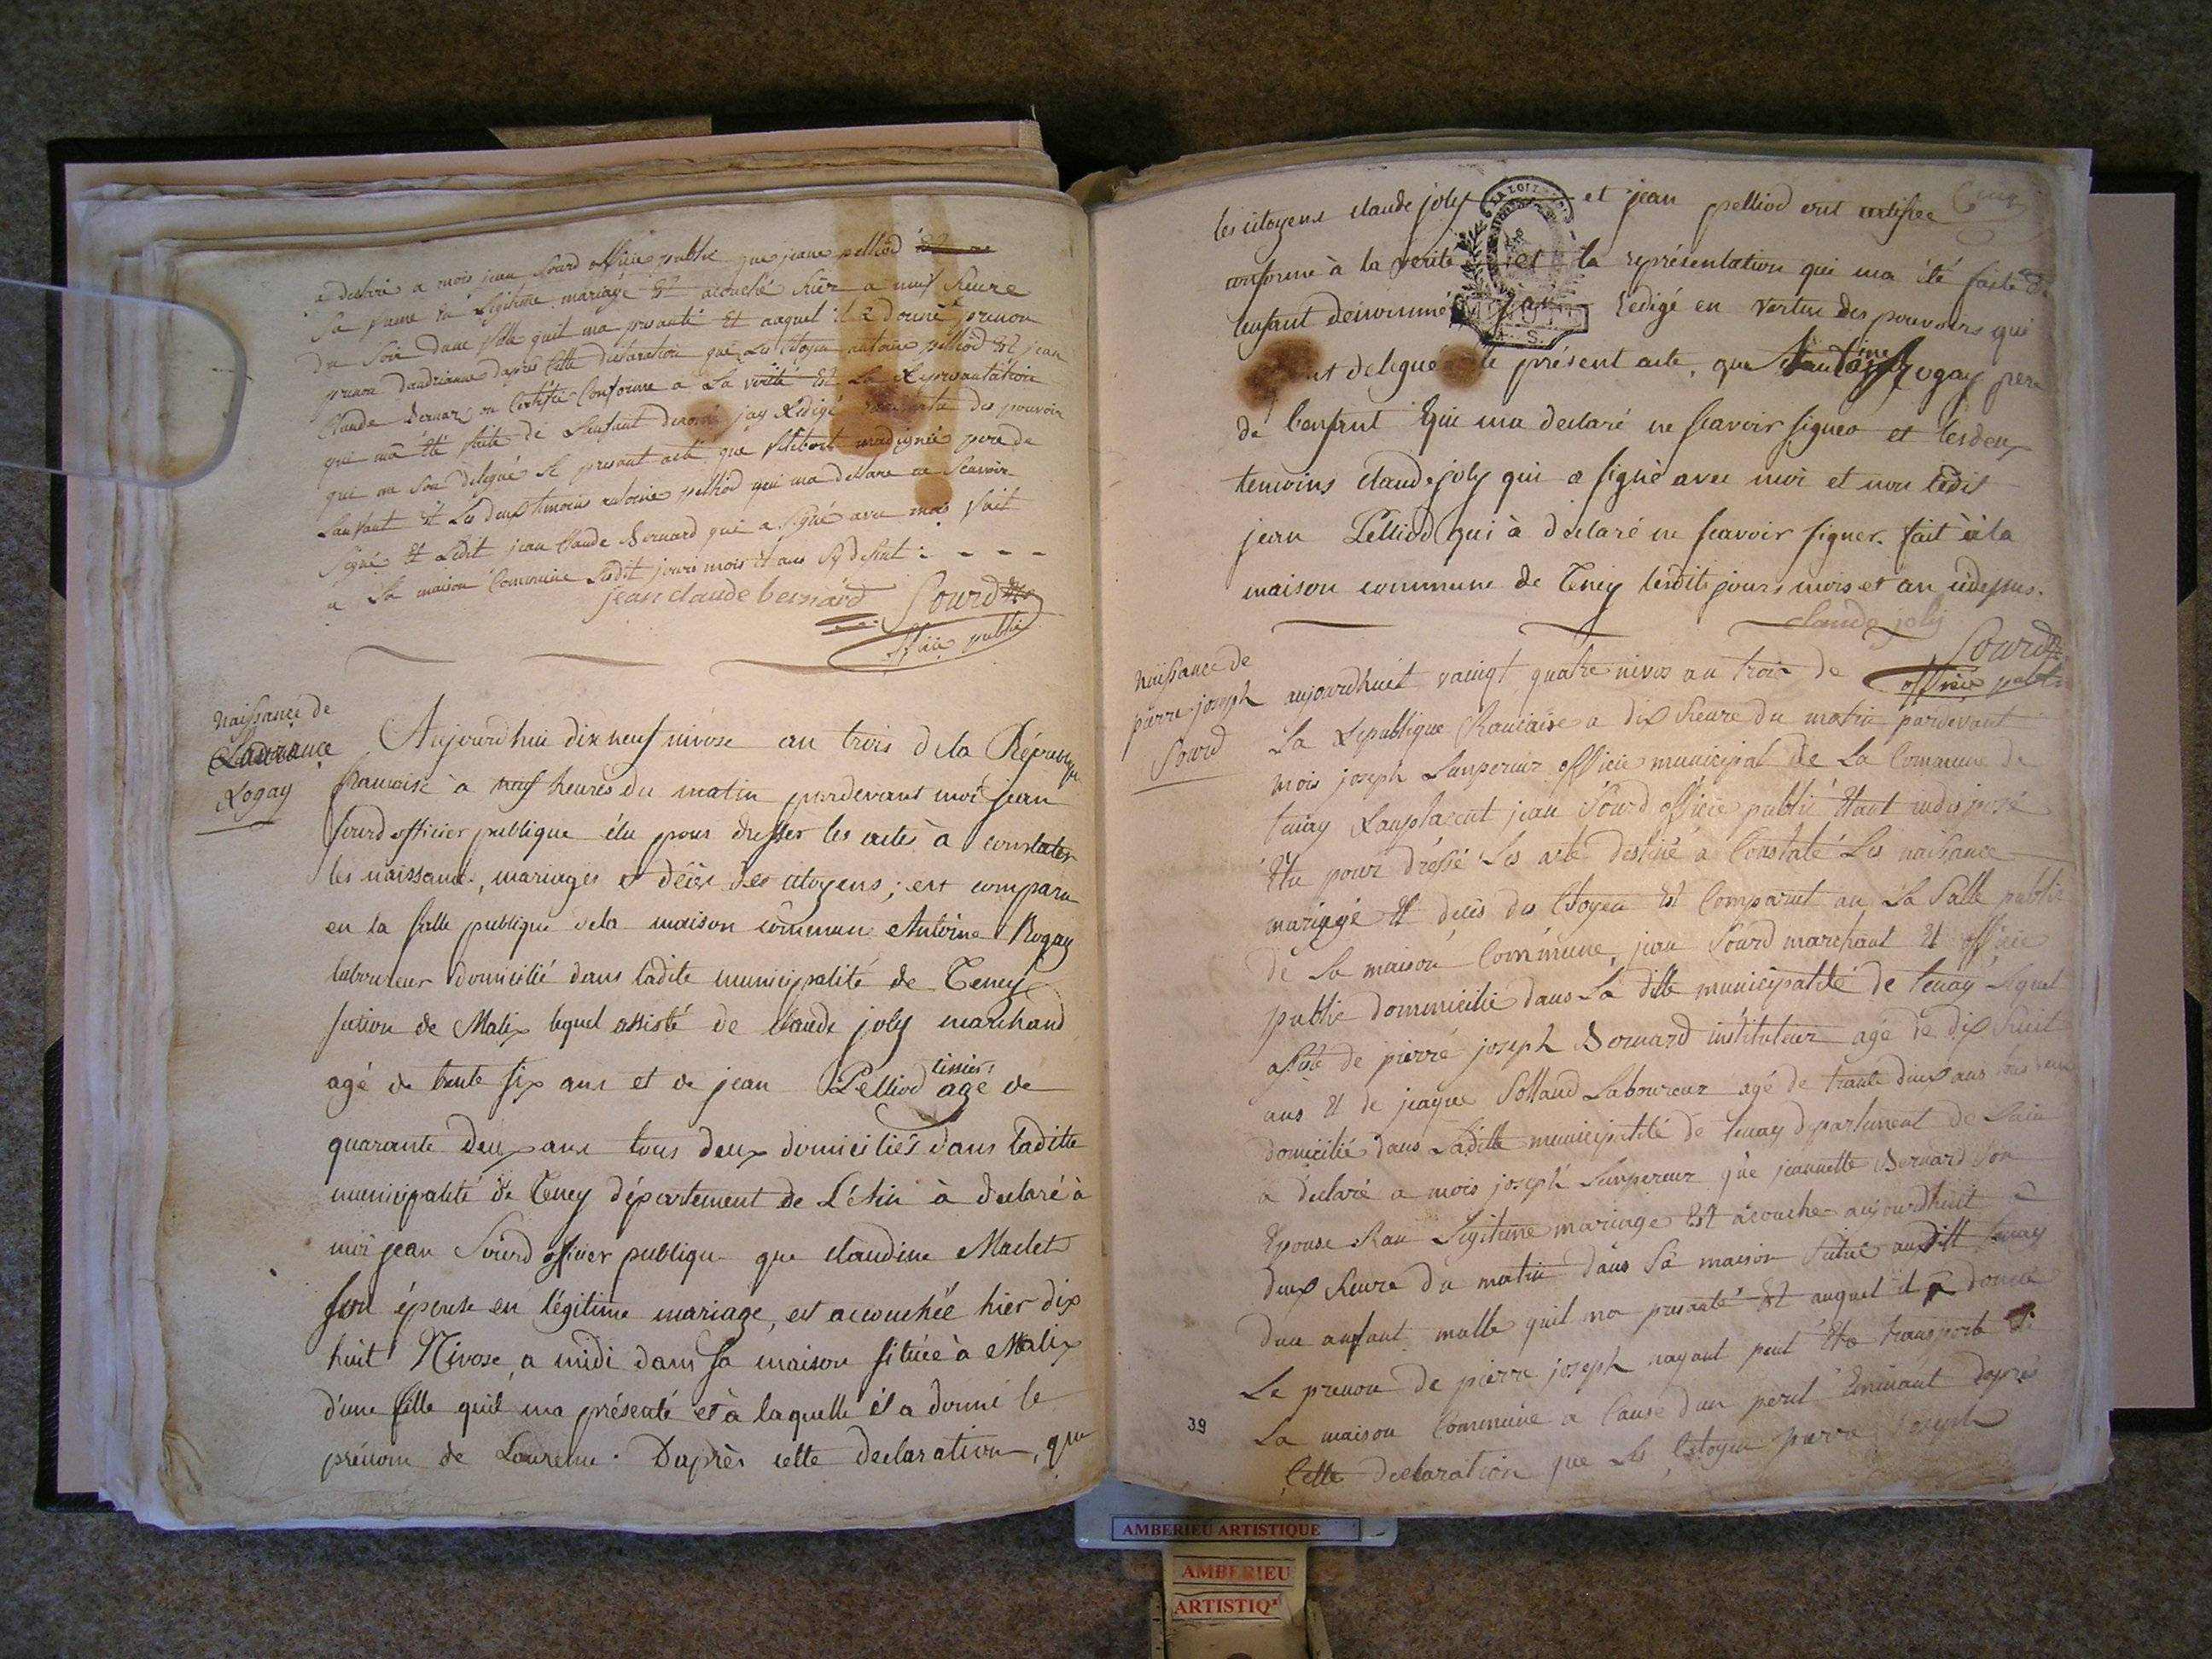 a declaré a mois jean Sourd officie public que jeane pelliod
Sa fame en Légitime mariage Est acouché hier a neuf heure
du Soir dune fille quil ma presanté Et aaquel il a donné prenon
prenon dandrianne dapres Cette declaration que Les Citoyen antoine pelliod Est jean
Claude Bernar on Certifié Conforme a La verité Est La Represantation
qui ma Eté faite de Lanfant denomé jay Redigé vertu des pouvoir
qui me Son delegué Le presant acte que pere de
Lanfant Et Les deux temoins antoine pelliod qui ma declare ne Scavoir
Signé Et Ledit jean Claude Bernard qui a Signé avec mois fait
a La maison Commune Ledit jours mois Et ans Sy desut : - - - -
jean claude bernard Sourd
officie public
Naissance de
Laurance
Rogay
Aujourdhui dix neuf nivose an trois de la République
francaise à neuf heures du matin pardevant moi jean
Sourd officier publique élu pour dresser les actes à constater
les naissance, mariages et décès des citoyens; est comparu
en la salle publique de la maison commune Antoine Rogay
laboureur domicilié dans ladite municipalité de Teney
section de Malix lequel assisté de claude joly marchand
agé de trente six ans et de jean Pelliod tissier agé de
quarante deux ans tous deux domiciliés dans laditte
municipalité de Teney département de L'Ain à declaré à
moi jean Sourd officier publique que claudine Maclet
son épouse en légitime mariage, est accouchée hier dix
huit Nivose, a midi dans sa maison située à Malix
d'une fille quil ma présenté et à laquelle il a donné le
prénom de Laurence. Daprès cette declaration, que
les citoyens claude joly et jean pelliod ont certifiee
conforme à la verité et la représentation qui ma été faite de
lenfant denommé jay redigé en vertu des pouvoirs qui
delegué le présent acte, que antoine Rogay pere
de l'enfant qui ma declaré ne scavoir signer et les deux
temoins claude joly qui a signé avec moi et non ledit
jean Pelliod qui à declaré ne scavoir signer. fait à la
maison commune de Teney lesdits jours mois et an cidessus.
claude joly
Sourd
officie public
Naissance de
pierre joseph
Sourd
aujourdhuit vaingt quatre nivos an trois de
La Republique francaise a dix heure du matin pardevant
mois joseph Lanpereur officie municipal de La Commune de
tenay Ranplacent jean Sourd officie public Etant indisposé
Elu pour dréssé Les acte destiné a Constaté Les naissance
mariage Et décès des Citoyen Est Comparut an La Salle public
de La maison Commune, jean Sourd marchant Et officie
public dommicilié dans La ditte municipalité de tenay Lequel
asisté de pierre joseph Bernard instituteur agé de dix huit
ans Et de jeaque Solland Laboureur agé de trante deux ans tous deux
domicilié dans Laditte municipalité de tenay departement de Lain
a declaré a mois joseph Lanpereur que jeannette Bernard Son
Epouse Legitime mariage Est acouche aujourdhuit a
deux heure du matin dans Sa maison Situé auditt tenay
dun anfant malle quil ma presanté Et auquel il a donné
Le prenon de pierre joseph nayant peut Etre transporte
La maison Commune a Cause dun peril Eminant dapres
Cette declaration que Les Citoyen pierre joseph
39
LA LOI
AMBERIEU ARTISTIQUE
AMBERIEU
ARTISTIQ